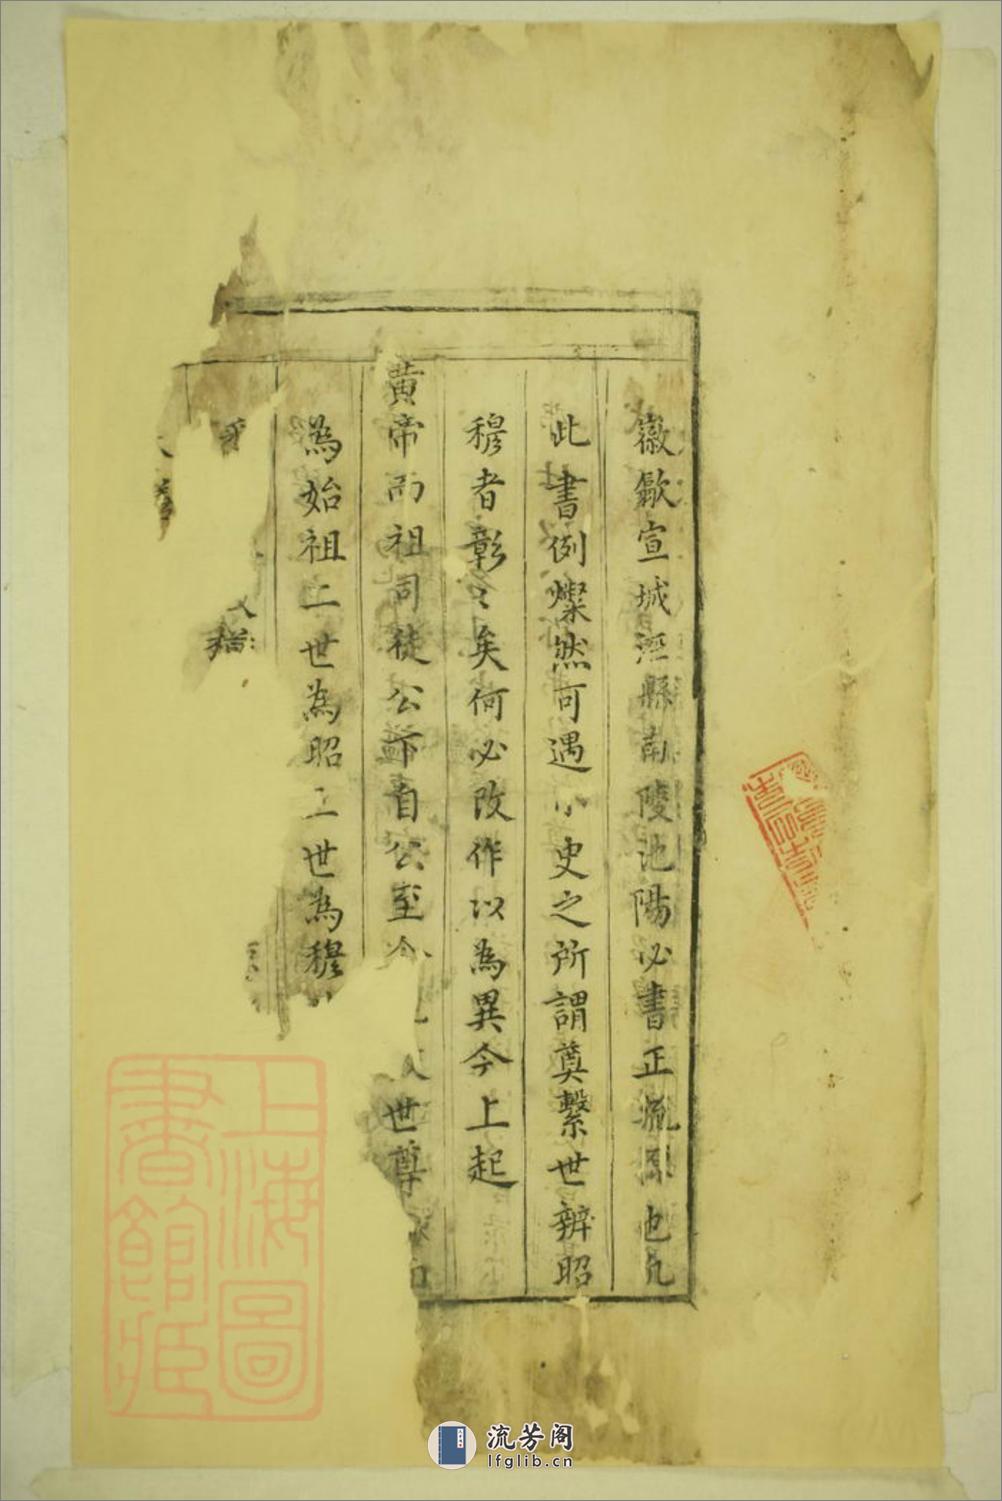 徽歙宣城涇縣南陵池陽必書正流原也凡
此書例燦然可遇小史之所謂奠繫世辨昭
穆者彰〻矣何必改作以為異今上起
黃帝而祖司徒公下自公至今世尊
為始祖二世為昭三世為穆
上海圖
書館藏
流芳阁
lfglib.cn